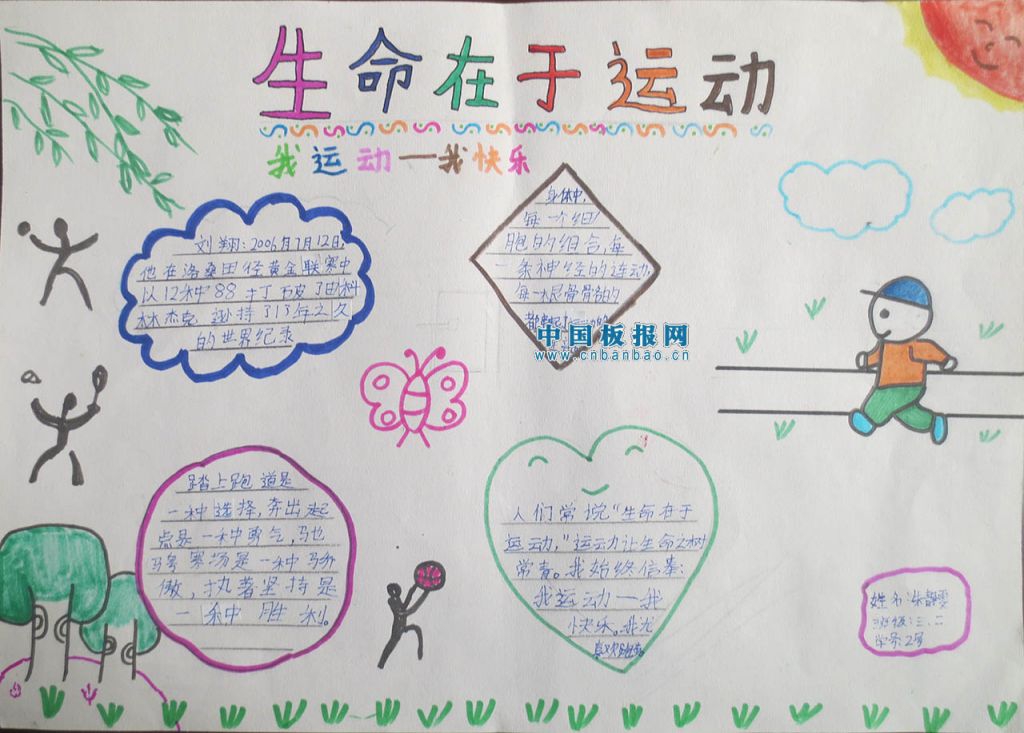 生命在于运动
我运动一我快乐
刘翔:2006月7月12日,
他在洛桑田径黄金联赛中
以12秒88打破了由科
林杰克逊保持了13年之久
的世界纪录
身体中,
每一个细
胞的组合,每
一条神经的连动,
每一根骨骼的
中国板报网
www.cnbanbao.cn
踏上跑道是
一种选择,奔出起
点是一种勇气,驰
骋赛场是一种骄
傲,执著坚持是
一种胜利。
人们常说“生命在于
运动,”运动让生命之树
常青。我始终信奉:
我运动一我
快乐。我
喜欢跑步。
姓名:朱
班级:三、二
学号2号